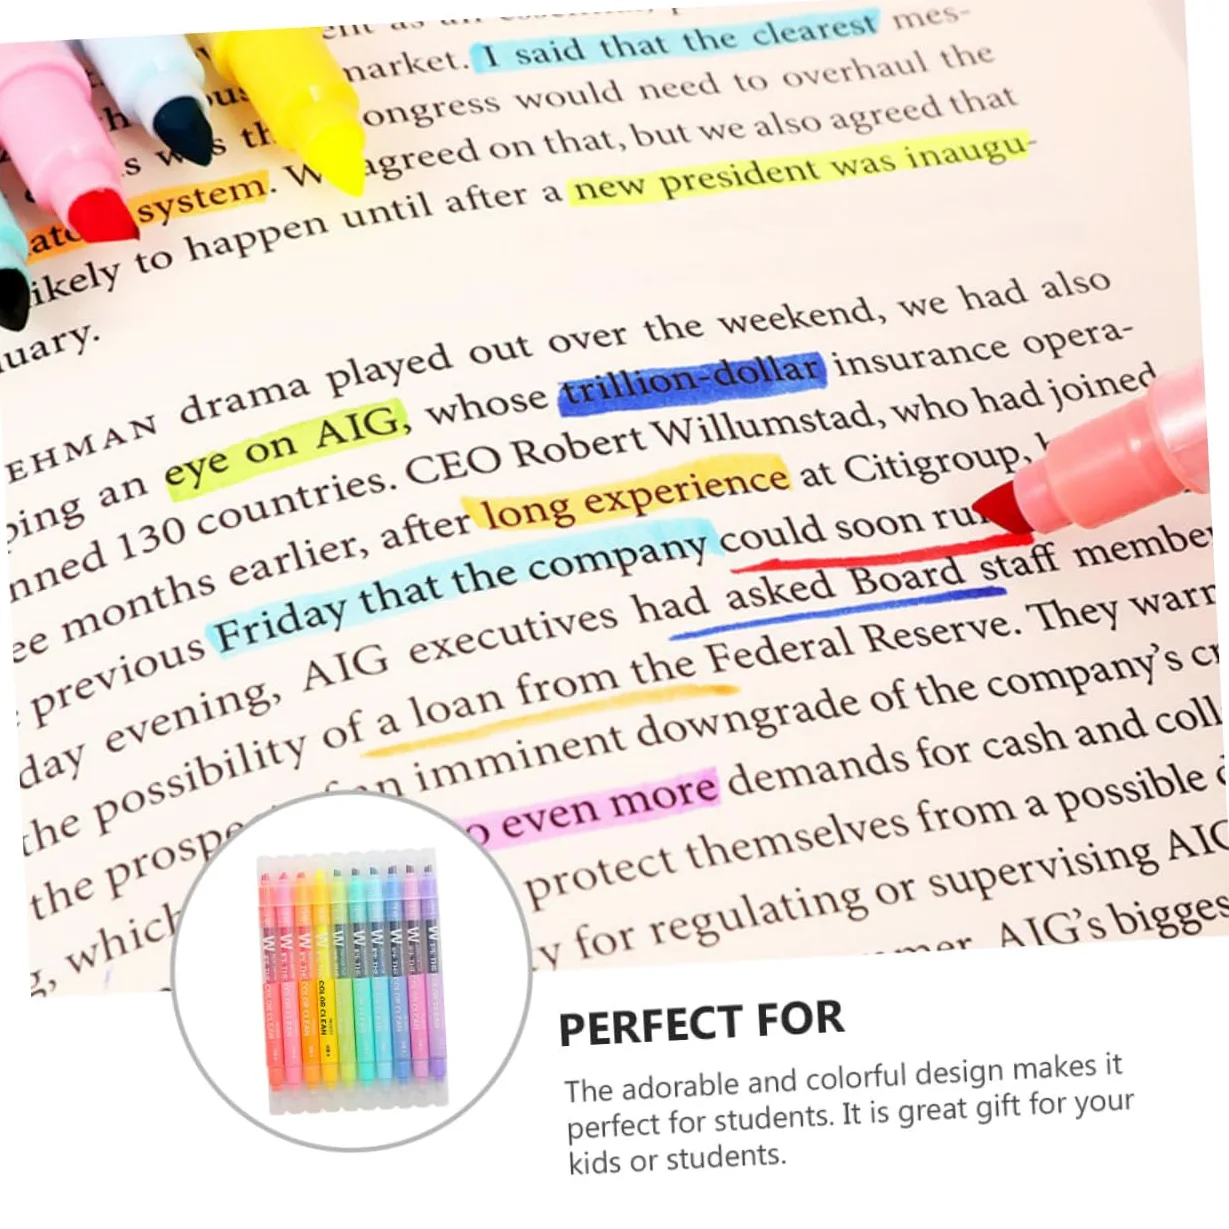 ent as an essential,
market. I said that the clearest mes-
ongress would need to overhaul the
s was th agreed on that, but we also agreed that
system. W
likely to happen until after a new president was inaugu-
uary.
EHMAN drama played out over the weekend, we had also
ping an eye on AIG, whose trillion-dollar insurance opera-
nned 130 countries. CEO Robert Willumstad, who had joined
ee months earlier, after long experience at Citigroup,
previous Friday that the company could soon run
day evening, AIG executives had asked Board staff member
the possibility of a loan from the Federal Reserve. They warn
the prospe of an imminent downgrade of the company's cr
g, which o even more demands for cash and coll
protect themselves from a possible
y for regulating or supervising AIG
mer, AIG's bigges
W
COLOR CLEAN
PERFECT FOR
The adorable and colorful design makes it
perfect for students. It is great gift for your
kids or students.